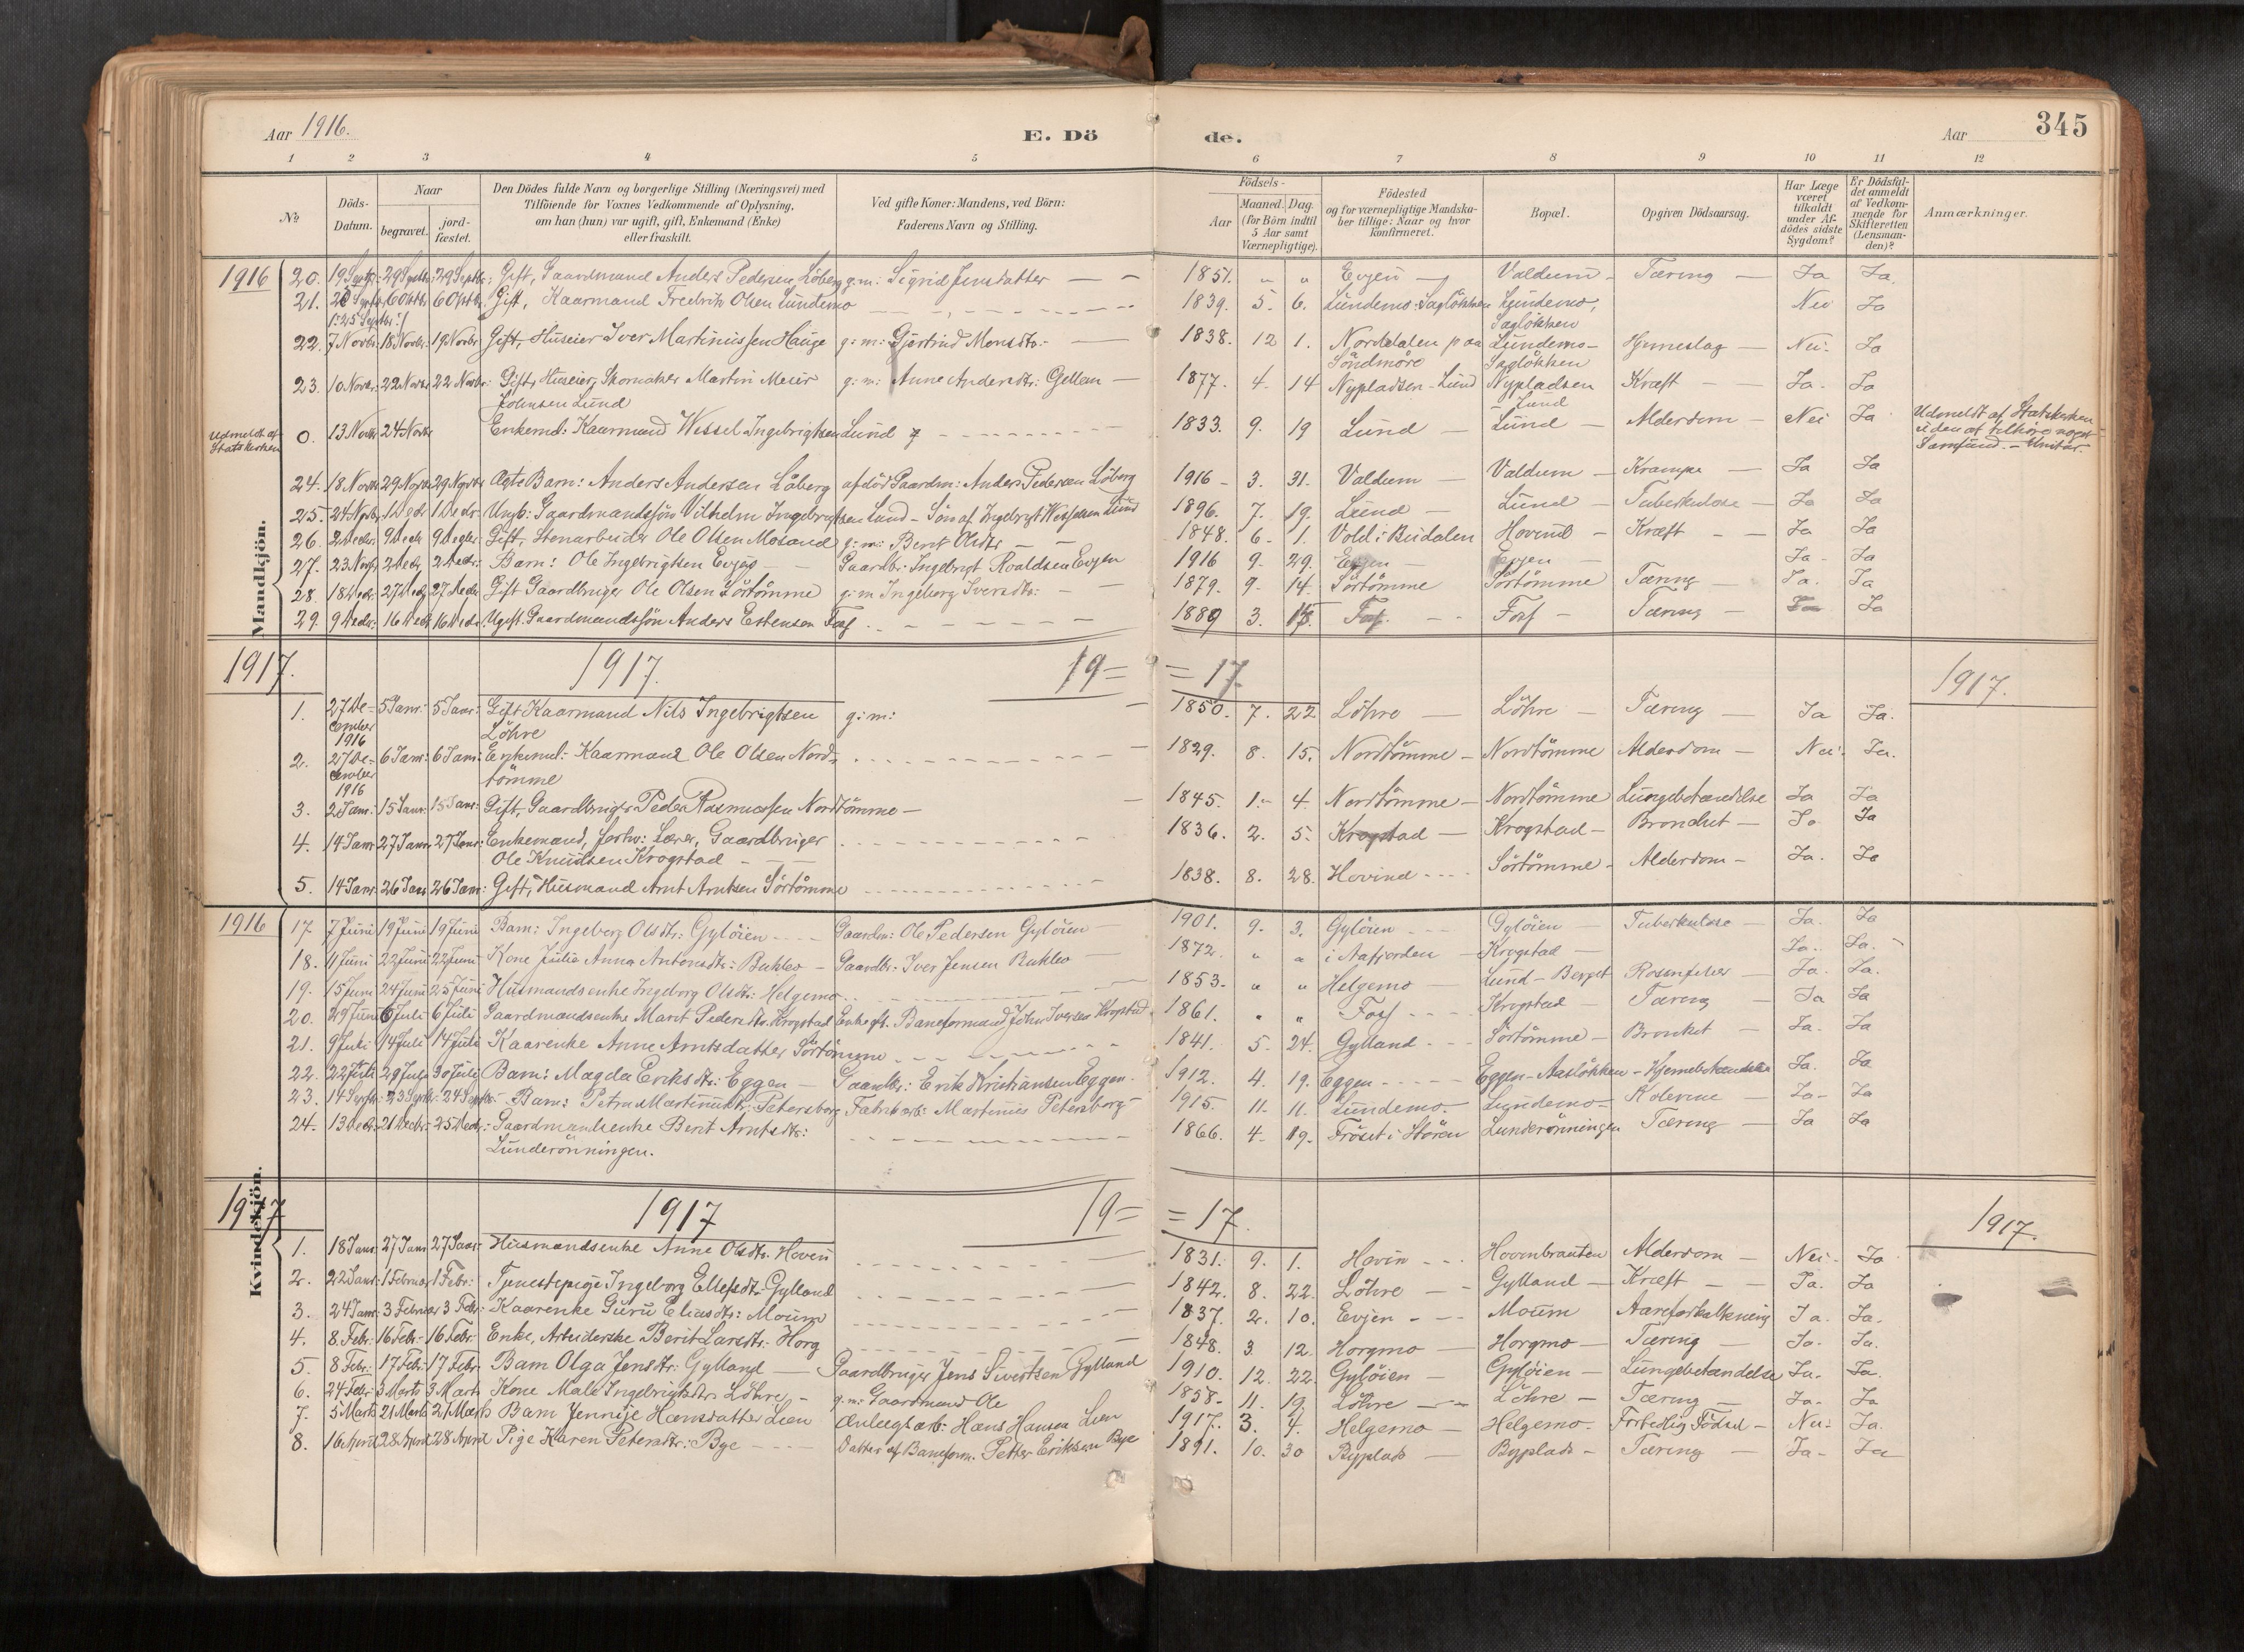 Aar 1916. E. Dö de. Aar 345
1 2 3 4 5 6 7 8 9 10 11 12
No. Döds-Datum. Naar begravet. jordfæstet. Den Dödes fulde Navn og borgerlige Stilling (Næringsvei) med Tilföiende for Voxnes Vedkommende af Oplysning, om han (hun) var ugift, gift, Enkemand (Enke) eller fraskilt. Ved gifte Koner: Mandens, ved Börn: Faderens Navn og Stilling. Födsels- Aar Maaned. Dag. (for Börn indtil 5 Aar samt Værnepligtige). Födested og for værnepligtige Mandskaber tillige: Naar og hvor konfirmeret. Bopæl. Opgiven Dödsaarsag. Har Læge været tilkaldt under Afdödes sidste Sygdom? Er Dödsfaldet anmeldt af Vedkommende for Skifteretten (Lensmanden)? Anmærkninger.
Mandkjön.
1916 20. 19 Septr: 29 Septbr: 29 Septbr: Gift, Gaardmand Anders Pedersen Löberg g: m: Sigrid Jensdatter — 1851. " " Evjen — Valdum — Tæring — Ja Ja.
21. Septr 6 Oktbr 6 Oktbr Gift, Kaarmand Fredrik Olsen Lundemo 1839. 5. 6. Lundemo-Saglökken Lundemo, Nei Ja
/: 25 Septbr :/ Saglökken
22. 7 Novbr. 18 Novbr. 19 Novbr. Gift, Huseier Iver Martinussen Hauge g: m: Gjertrud Monsdtr: — 1838. 12 1. Norddalen paa Lundemo- Hjerneslag — Nei. Ja
Söndmöre Saglökken
23. 10 Novbr: 22 Novbr 22 Novbr: Gift, Huseier, Skomaker Martin Meier g: m: Anne Andersdtr: Gellan — 1877. 4. 14 Nypladsen - Lund Nypladsen Kræft — Ja. Ja
Johnsen Lund Lund
Udmeldt af Statskirken 0. 13 Novbr 24 Novbr Enkemd: Kaarmand Wessel Ingebrigtsen Lund 1833. 9. 19 Lund — Lund — Alderdom — Nei Ja Udmeldt af Statskirken
uden at tilhöre noget
Samfund. - Unitar.
24. 18 Novbr 29 Novbr 29 Novbr Ægte Barn: Anders Andersen Löberg afdöd Gaardm: Anders Pedersen Löberg 1916 - 3. 31. Valdum — Valdum — Krampe — Ja Ja
25. 24 Novbr. 1 Decbr 1 Decbr: Ungk: Gaardmandssön Vilhelm Ingebrigtsen Lund - Sön af Ingebrigt Wesselsen Lund 1896. 7. 19. Lund — Lund — Tuberkulose — Ja Ja
26. 2 Decbr. 9 Decbr 9 Decbr: Gift, Stenarbeider Ole Olsen Mosand g: m: Berit Olsdtr — 1848. 6. 1. Vold i Budalen Hovind — Kræft — Ja Ja
27. 23 Novbr 2 Decbr 2 Decbr: Barn: Ole Ingebrigtsen Evjen — Gaardbr: Ingebrigt Roaldsen Evjen 1916 9. 29. Evjen — Evjen — Ja - Ja
28. 18 Decbr. 27 Decbr 27 Decbr Gift Gaardbruger Ole Olsen Sörtömme g: m Ingeborg Iversdtr: — 1879. 9. 14. Sörtömme Sörtömme Tæring — Ja. Ja
29. 9 Decbr: 16 Decbr 16 Decbr Ugift. Gaardmandssön Anders Estensen Foss 1889 3. Foss. Foss — Tæring — Ja Ja
1917. 1917. 19= =17. 1917.
1. 27 De- 5 Janr: 5 Janr: Gift Kaarmand Nils Ingebrigtsen g: m: — 1850. 7. 22 Löhre — Löhre — Tæring — Ja Ja.
cember Löhre
1916
2. 27 De- 6 Janr: 6 Janr: Enkemd: Kaarmand Ole Olsen Nord- 1829. 8. 15. Nordtömme — Nordtömme Alderdom — Nei. Ja.
cember tömme
1916
3. 2 Janr: 15 Janr. 15 Janr: Gift, Gaardbruger Peder Rasmussen Nordtömme — 1845. 1. 4. Nordtömme — Nordtömme Lungebetændelse Ja Ja
4. 14 Janr 27 Janr. 27 Janr: Enkemand, forhv: Lærer, Gaardbruger 1836. 2. 5. Krogstad — Krogstad — Bronchit — Ja Ja
Ole Knudsen Krogstad
5. 14 Janr. 26 Janr 26 Janr: Gift, Husmand Arnt Arntsen Sörtömme 1838. 8. 28. Hovind Sörtömme - Alderdom — Ja. Ja
Kvindekjön.
1916 17 7 Juni 19 Juni 19 Juni Barn: Ingeborg Olsdtr: Gylöien Gaardm: Ole Pedersen Gylöien — 1901. 9. 3. Gylöien Gylöien — Tuberkulose — Ja. Ja
18. 11 Juni 22 Juni 22 Juni Kone Julia Anna Antonsdtr: — Gaardbr: Iver Jensen — 1872. " " i Aafjorden — Krogstad — Ja. Ja.
19. 15 Juni 24 Juni 25 Juni Husmandsenke Ingeborg Olsdtr: Helgemo 1853. " " Helgemo — Lund - Berget Rosenfeber — Ja. Ja.
20. 29 Juni 6 Juli 6 Juli Gaardmandsenke Marit Pedersdtr. Krogstad Enke eft. Baneformand John Iversen Krogstad 1861. " " Foss Krogstad — Tæring — Ja Ja
21. 9 Juli 14 Juli 14 Juli Kaarenke Anne Arntsdatter Sörtömme 1841. 5. 24. Gylland Sörtömme — Bronkit — Ja. Ja
22. 22 Juli 29 Juli 30 Juli Barn: Magda Eriksdtr: Eggen — Gaardbr: Erik Kristiansen Eggen. 1912. 4. 19. Eggen Eggen - Aaslökken - Hjernebetændelse Ja. Ja
23. 14 Septbr: 23 Septbr: 24 Septbr. Barn: Petra Martinusdtr: Petersborg Fabrik arb: Martinus Petersborg 1915. 11. 11. Lundemo. Lundemo — Kolerine — Ja - Ja
24. 13 Decbr. 21 Decbr. 25 Decbr: Gaardmandsenke Berit Arntsdtr: 1866. 4. 19. Fröset i Hölen Lunderönningen Tæring — Ja Ja
Lunderönningen.
1917 1917 19= =17. 1917.
1. 18 Janr. 27 Janr 27 Janr: Husmandsenke Anne Olsdtr. Hovin 1831. 9. 1. Hovin Hovinbrauten Alderdom — Nei. Ja
2. 22 Janr: 1 Februar 1 Febr: Tjenestepige Ingeborg Ellefsdtr Gylland 1842. 8. 22. Löhre — Gylland — Kræft — Ja. Ja
3. 24 Janr. 3 Februar 3 Febr: Kaarenke Guru Eliasdtr: Moum 1837. 2. 10. Evjen Moum Aareforkalkning Ja. Ja.
4. 8. Febr: 16 Febr: 16 Febr. Enke, Arbeiderske Berit Larsdtr. Horg 1848. 3 12. Horgmo — Horgmo — Tæring — Ja. Ja.
5 8 Febr: 17 Febr: 17 Febr. Barn Olga Jensdtr: Gylland — Gaardbruger Jens Sivertsen Gylland 1910. 12. 22. Gylöien — Gylöien — Lungebetændelse Ja. Ja.
6. 24 Febr 3 Marts 3 Marts Kone Mali Ingebrigtsdtr Löhre, — g. m: Gaardmand Ole 1858. 11. 19. Löhre Löhre — Tæring — Ja. Ja
7. 5 Marts 21 Marts 21 Marts Barn Jennije Hansdatter Lien Anlægsarb: Hans Hansen Lien 1917. 3. 4. Helgemo — Helgemo. Fortidlig Födsel — Nei. Ja.
8. 16 April 28 April 28 April Pige Karen Petersdtr: Bye Datter af Baneform. Petter Eriksen Bye 1891. 10. 30 Byplads — Byplads — Tæring — Ja - Ja